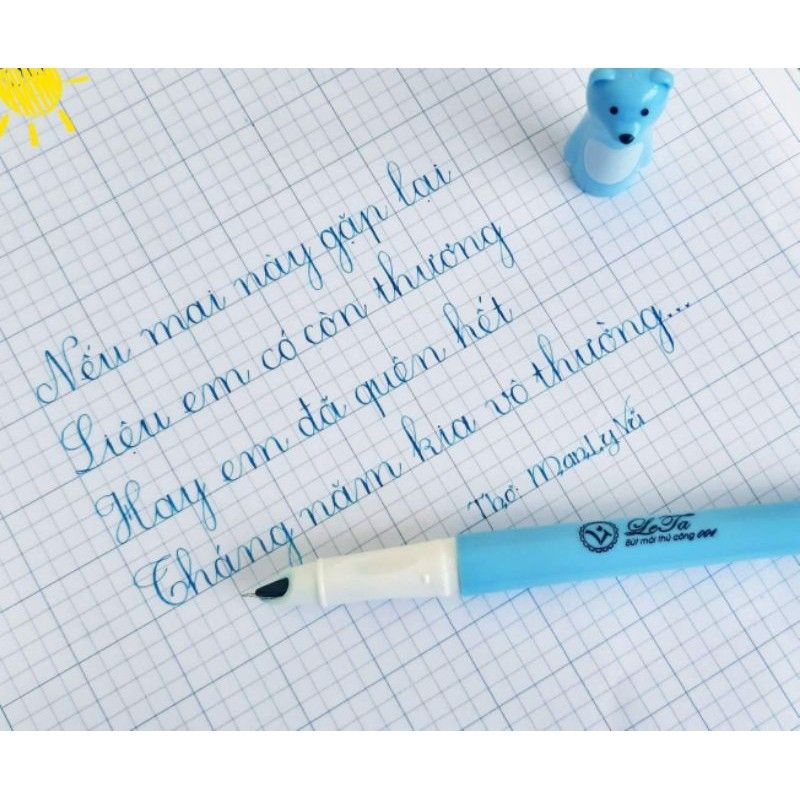 Nếu mai này gặp lại
Liệu em có còn thương
Hay em đã quên hết
Tháng năm kia vô thường...
Thơ: ManLyVũ
LeTa
Bút mài thủ công 004